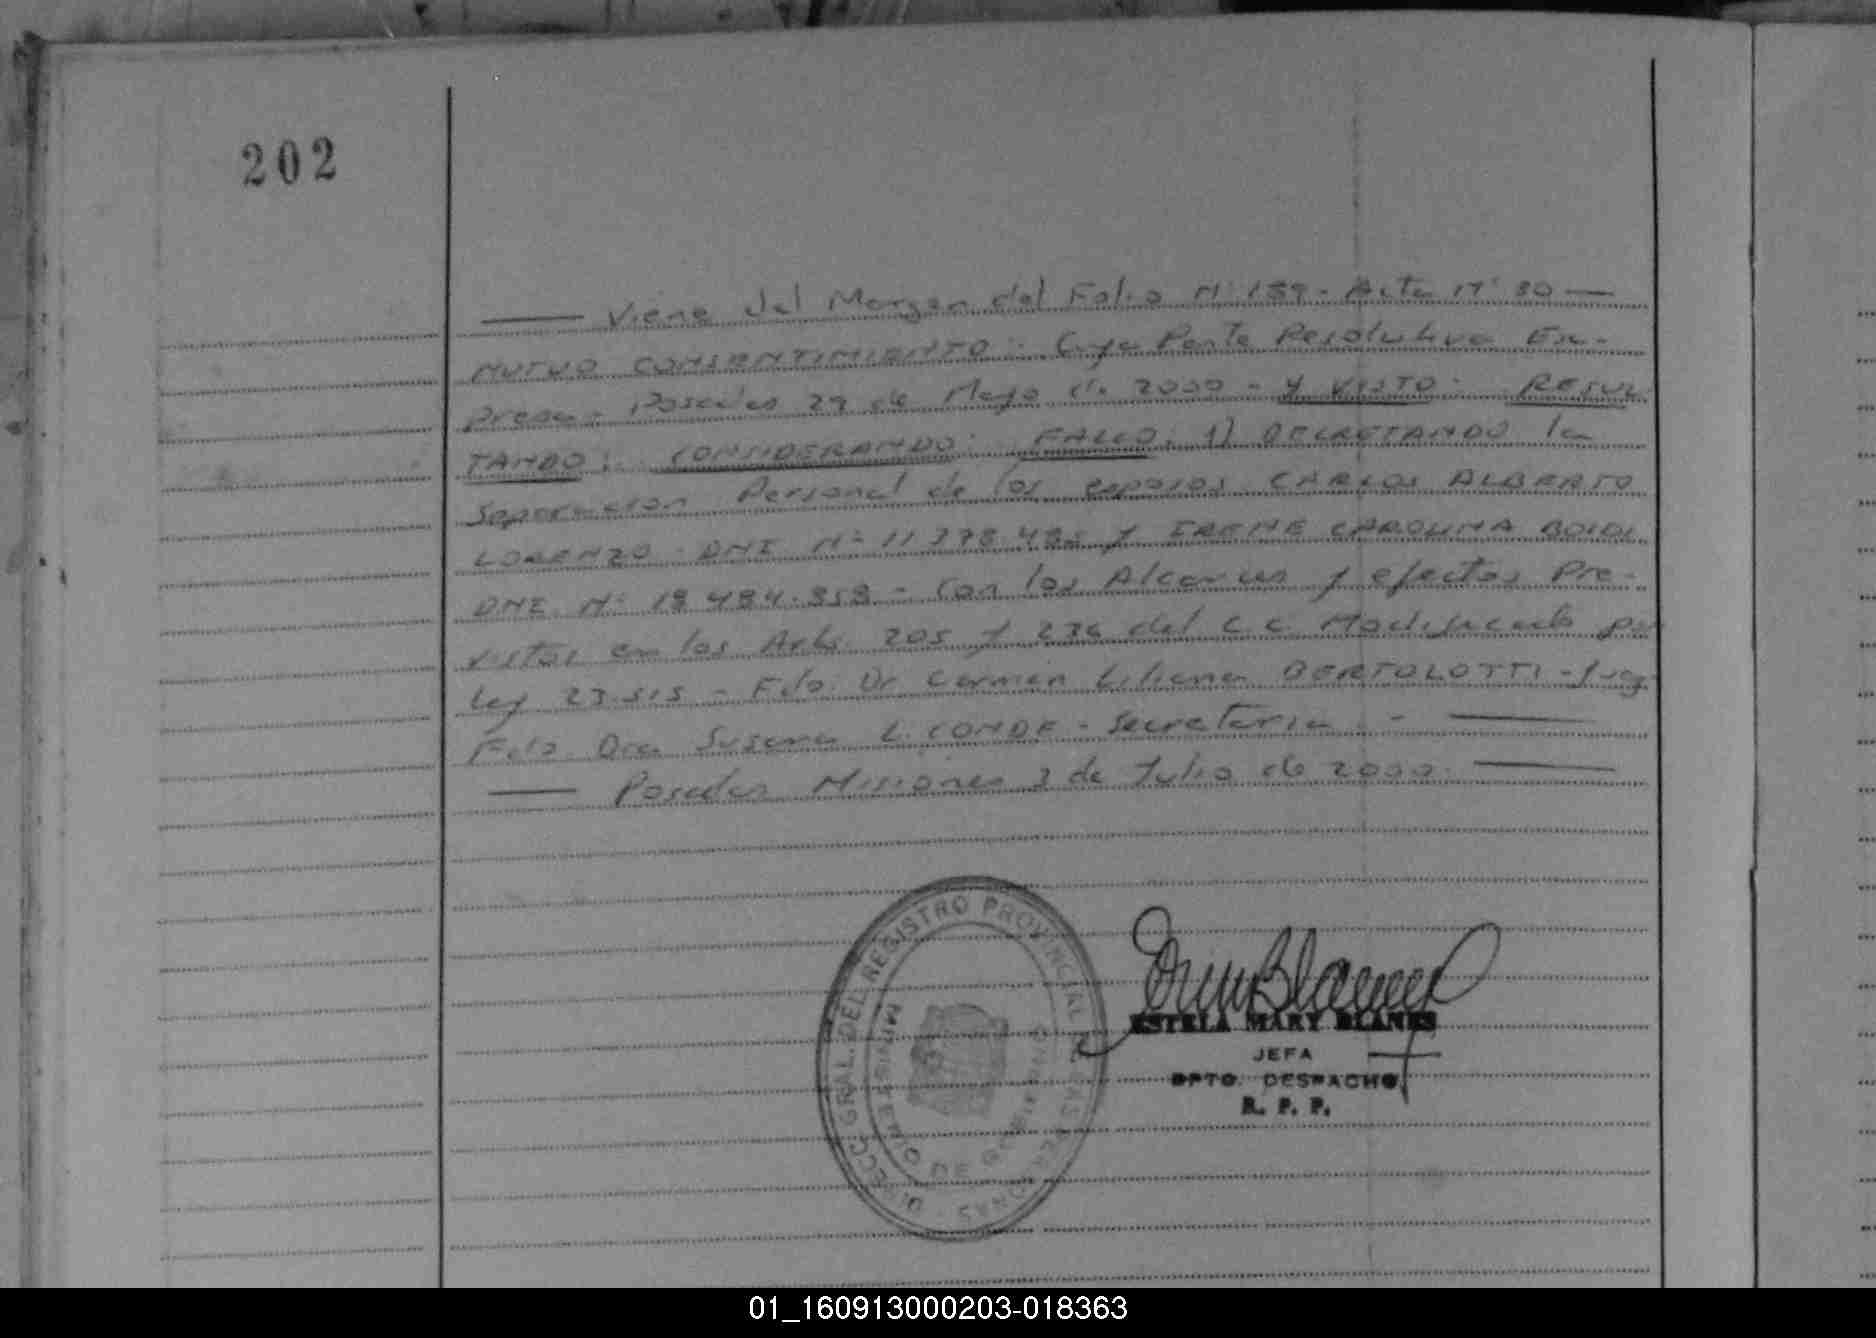 202
Viene del Margen del Folio Nº 189 - Acta Nº 80
MUTUO CONSENTIMIENTO. Cuya Parte Resolutiva Ex-
presa - Posadas 29 de Mayo de 2000 - Y VISTO: RESUL
TANDO: CONSIDERANDO: FALLO. 1) DECRETANDO la
Separacion Personal de los esposos CARLOS ALBERTO
LORENZO - DNI Nº y IRENE CAROLINA BOIDI
DNI. Nº 18 484.858 - Con los Alcances y efectos Pre-
vistos en los Arts. 205 y 236 del C.C. Modificado por
Ley 23.515 - Fdo. Dr Carmen Liliana BERTOLOTTI - Juez
Fdo. Dra Susana L. CONDE - Secretaria. -
Posadas Misiones 3 de Julio de 2000.
DIRECC. GRAL. DEL REGISTRO PROVINCIAL DE LAS PERSONAS
MINISTERIO DE GOBIERNO
ESTELA MARY BLANES
JEFA
DPTO. DESPACHO
R. P. P.
01_160913000203-018363